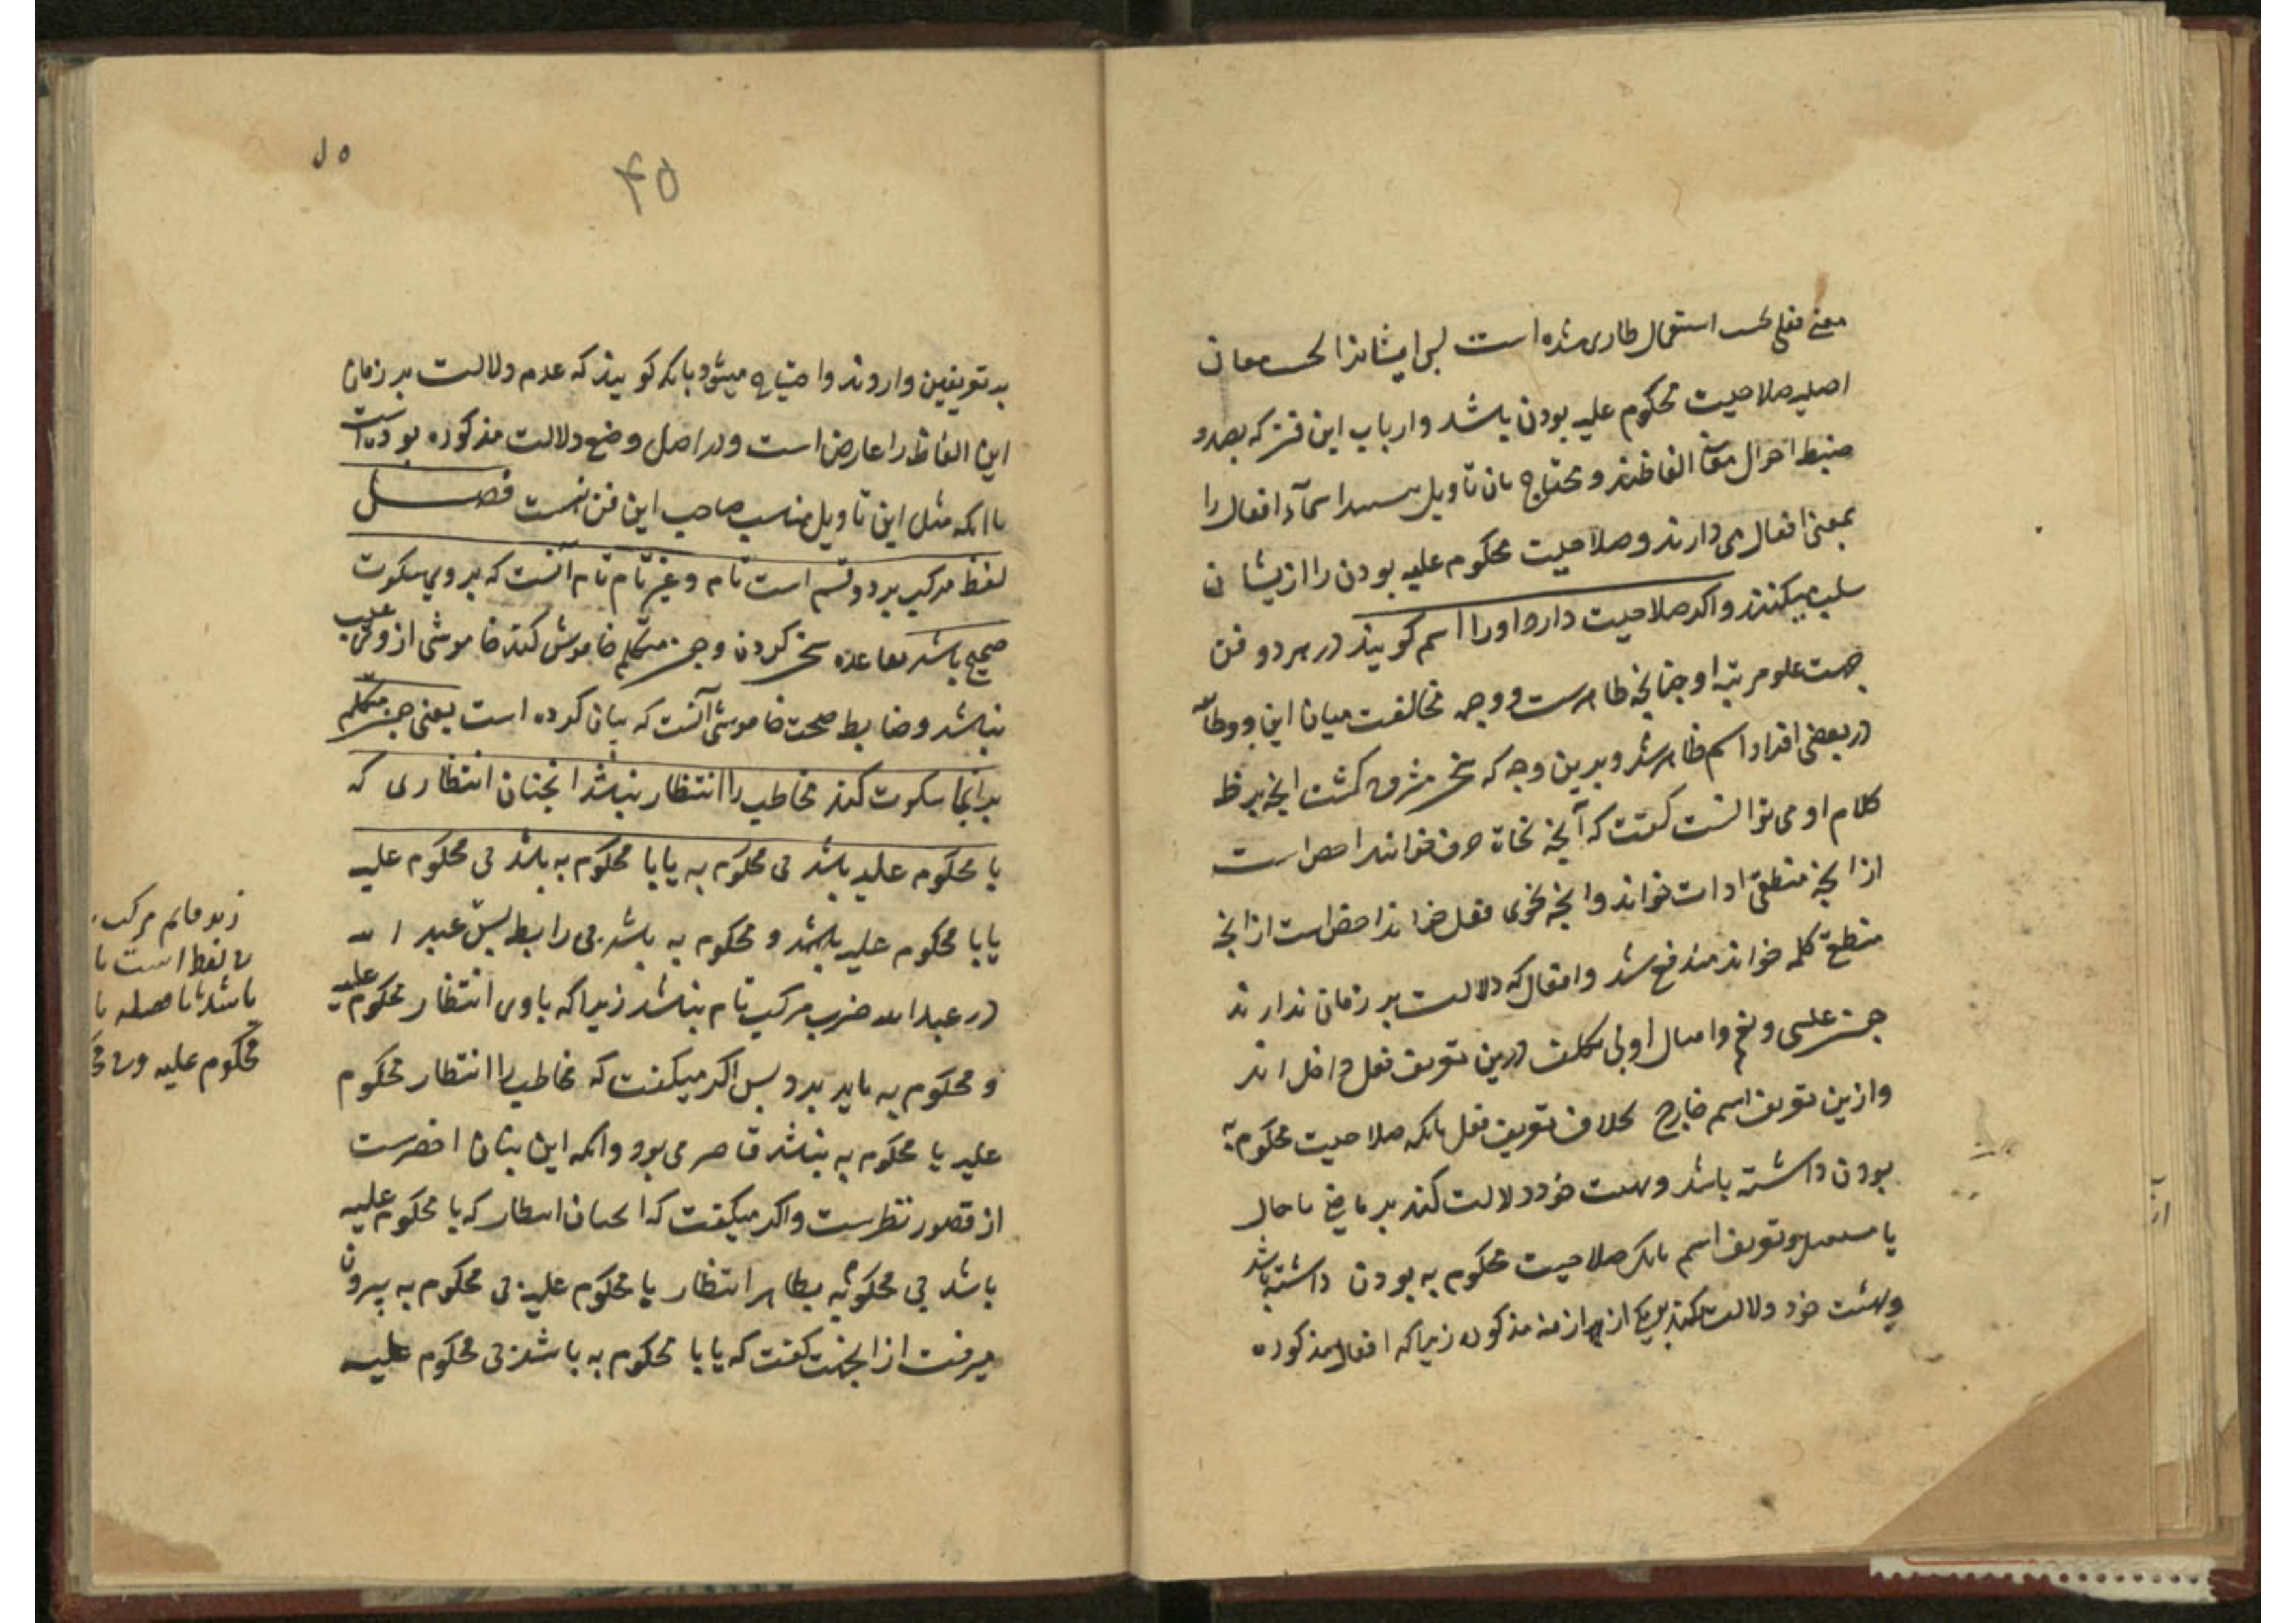 معنی فعلی بحسب استعمال طاری شده است پس ایشانرا بحسب معانی
اصلیه صلاحیت محکوم علیه بودن باشد و ارباب این فن که بصدد
ضبط احوال معانی الفاظند و محتاج بان تاویل اسماء افعال را
بمعنی افعال می دارند و صلاحیت محکوم علیه بودن را از یشان
سلب میکنند و اکر صلاحیت دارد او را اسم کویند در هر دو فن
جهت علو مرتبه او چنانچه ظاهرست و وجه مخالفت میان این دو طایفه
در بعضی افراد اسم ظاهر شد و بدین وجه که مشرف کشت انچه بر ظ
کلام او می توانست کفت که آنچه نحاة حرف خوانند اخص است
از انچه منطقی ادات خواند و انچه نحوی فعل خواند اخص است از انچه
منطقی کلمه خواند مندفع شد و افعال که دلالت بر زمان ندارند
چون عسی و نعم و امثال او بی تکلف درین تعریف فعل داخل اند
و ازین تعریف اسم خارج بخلاف تعریف فعل بانکه صلاحیت محکوم به
بودن داشته باشد و بهیئت خود دلالت کند بر ماضی یا حال
یا مستقبل و تعریف اسم بانکه صلاحیت محکوم به بودن داشته باشد
و بهیئت خود دلالت نکند بر یکی از ازمنه مذکوره زیرا که افعال مذکوره
۴۵
بر تعریفین وارد وند و احتیاج میشود بانکه کویند که عدم دلالت بر زمان
این الفاظ را عارض است و در اصل وضع دلالت مذکوره بوده است
با انکه مثل این تاویل مناسب صاحب این فن نیست فصل
لفظ مرکب بر دو قسم است تام و غیر تام تام آنست که بر وی سکوت
صحیح باشد بقاعده سخن کردن و چون متکلم خاموش کند خاموشی از وی عیب
نباشد و ضابط صحت خاموشی آنست که بیان کرده است یعنی چون متکلم
بر انجا سکوت کند مخاطب را انتظار نباشد انچنان انتظاری که
با محکوم علیه باشد بی محکوم به یا با محکوم به باشد بی محکوم علیه
یا با محکوم علیه باشد و محکوم به باشد بی رابط پس عبد الله
در عبد الله ضرب مرکب تام نباشد زیرا که با وی انتظار محکوم علیه
و محکوم به باید برد پس اکر میکفت که مخاطب را انتظار محکوم
علیه یا محکوم به نباشد قاصر می بود و انکه این بیان اخصرست
از قصور نظرست و اکر میکفت که انچنان انتظار که با محکوم علیه
باشد بی محکوم به بظاهر انتظار با محکوم علیه بی محکوم به بیرون
میرفت از انجهت کفت که یا با محکوم به باشد بی محکوم علیه
زید قایم مرکب
لفظ است با
باشد تا حاصله با
محکوم علیه و